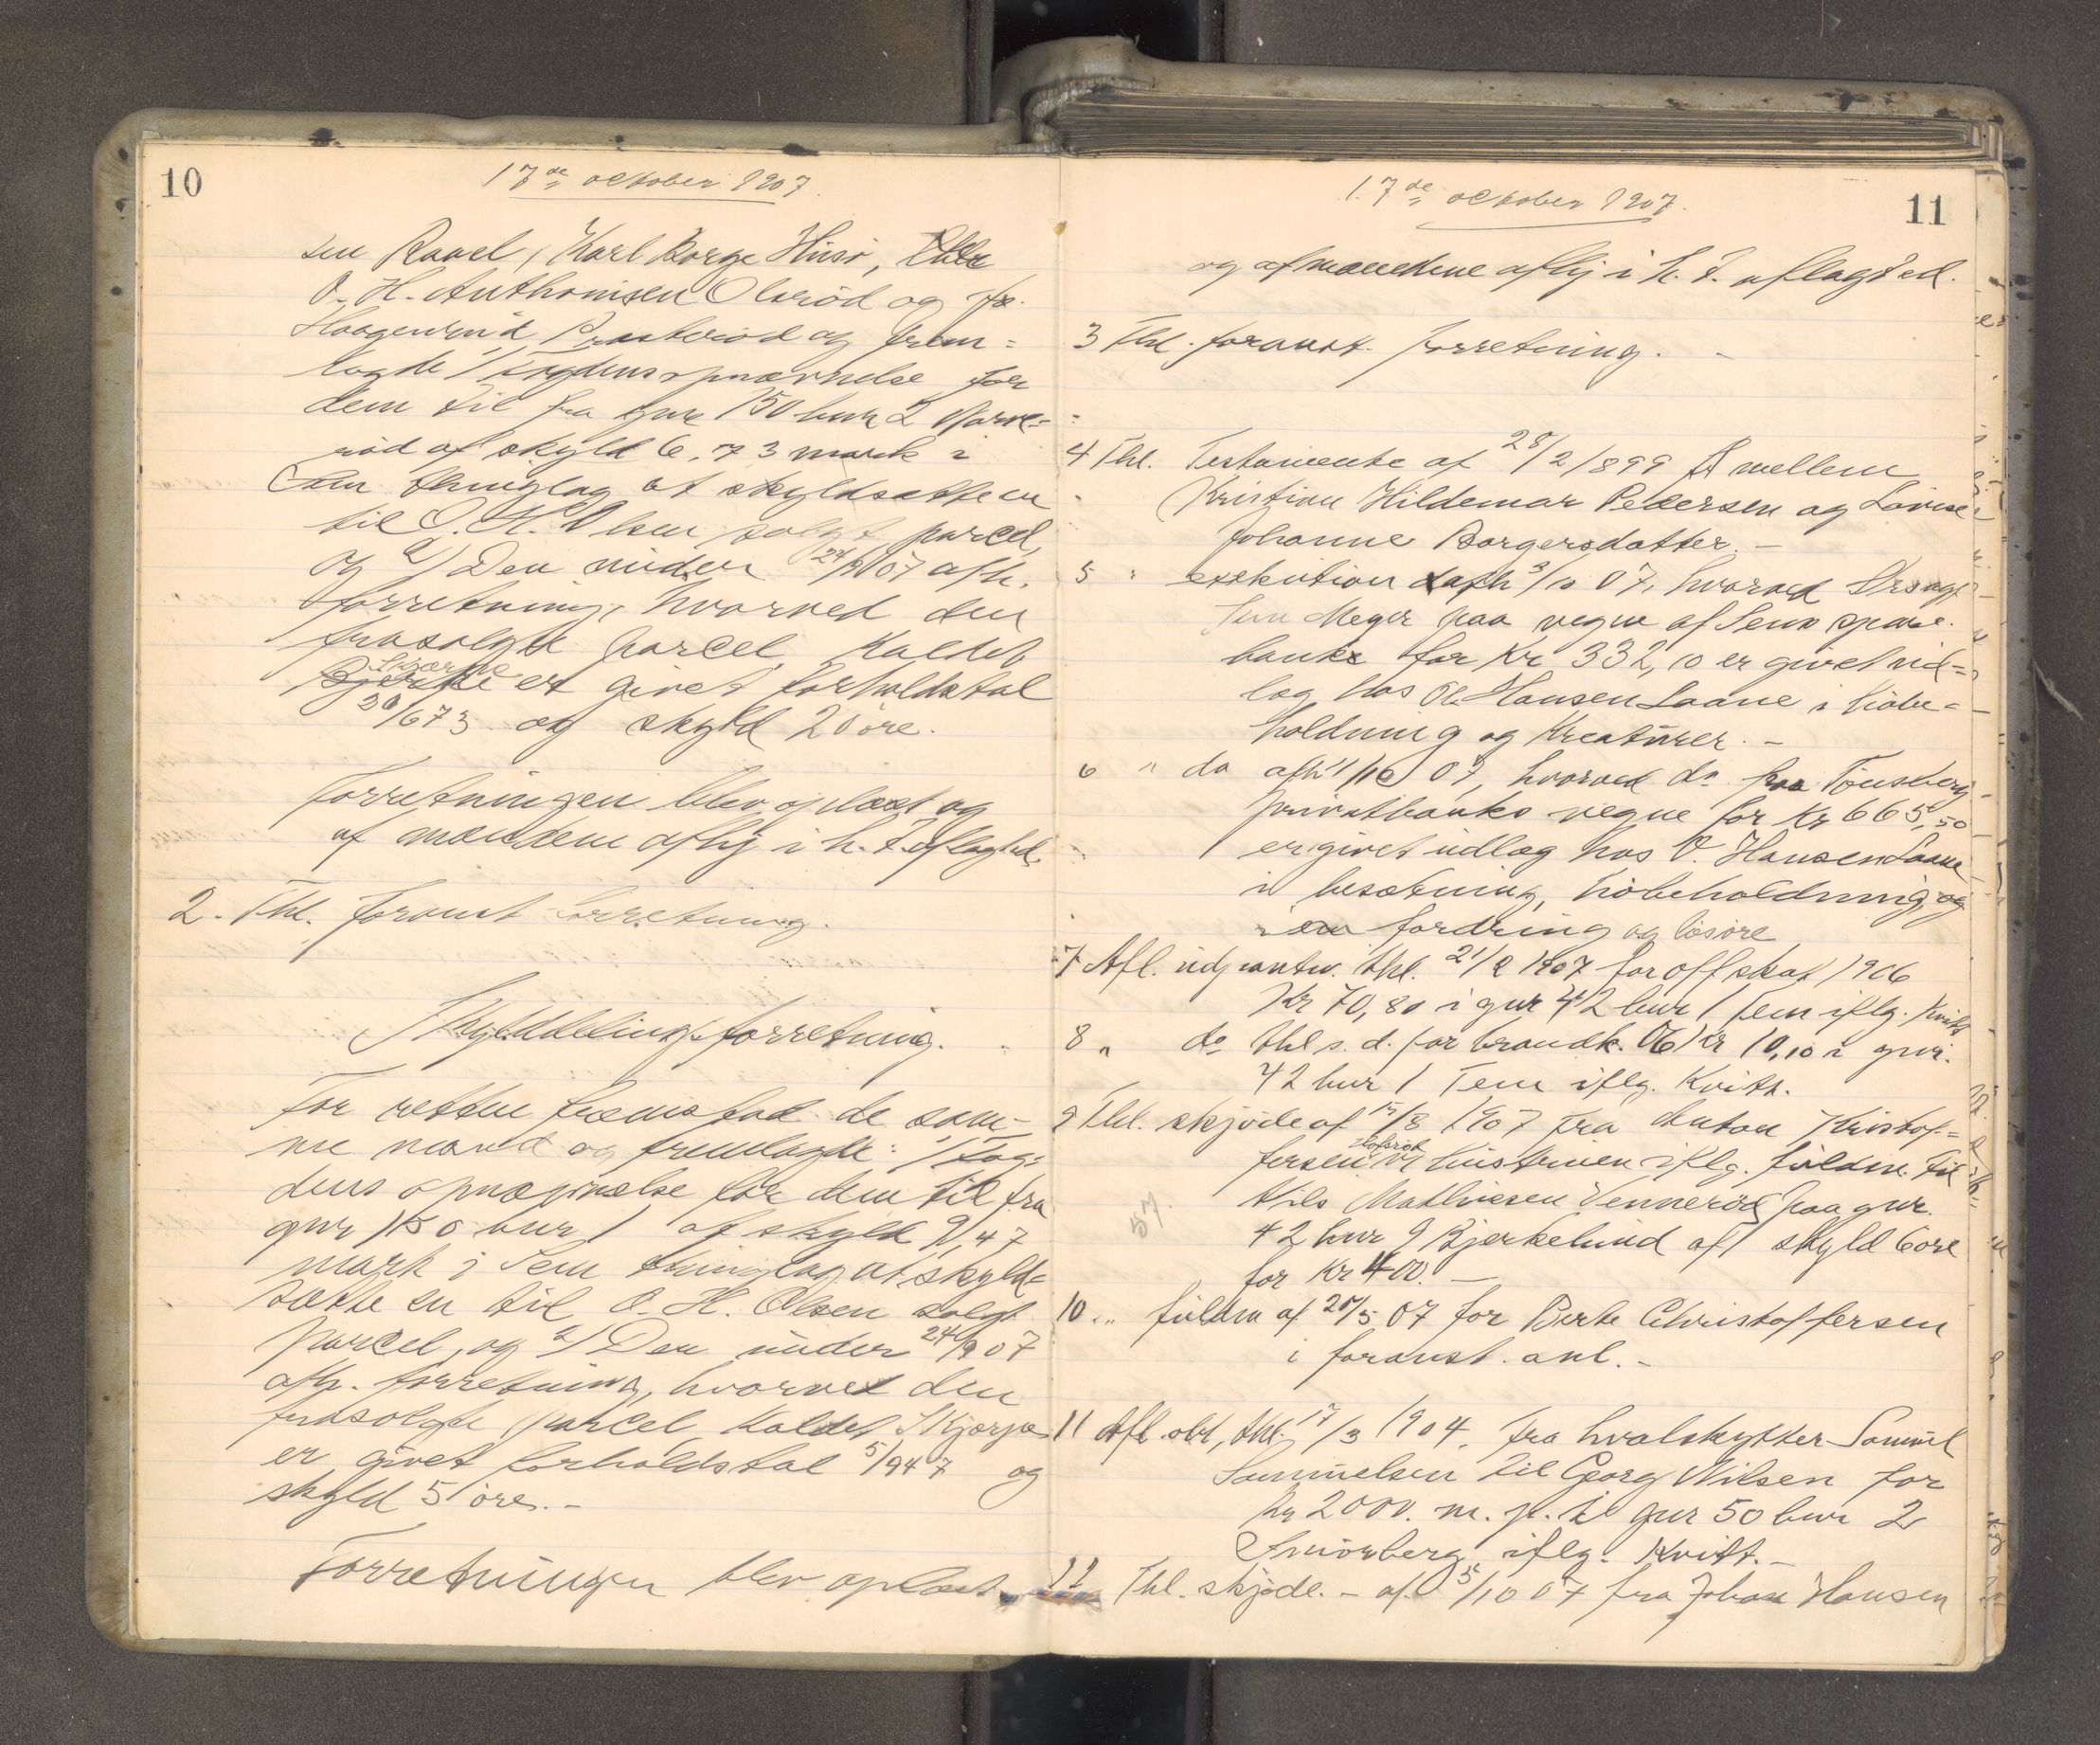 10
17de oktober 1907.
sen Raael, Karl Borge Husø,
O. H. Anthonisen Olsrød og
Haagenrud og frem=
lagde 1) Fogdens opnævnelse for
dem til fra gnr 150 bnr 2
rød af skyld 6,73 mark i
Sem thinglag at skyldsætte en
til O. H. Olsen solgt parcel,
og 2) Den under 24/9 07 afh.
forretning, hvorved den
frasolgte parcel, kaldet
er givet forholdstal
20/673 og skyld 20 øre.
Forretningen blev oplæst og
af mændene aflij i h. t. aflagt ed.
2. Thl. foranst forretning.
Skylddelingsforretning.
For retten fremstod de sam-
me mænd og fremlagde: 1) Fog=
dens opnævnelse for dem til fra
gnr 150 bnr 1 af skyld 9,47
mark i Sem thinglag at skyld=
sætte en til O. H. Olsen solgt
parcel, og 2) Den under 24/9 07
afh. forretning, hvorved den
frasolgte parcel, kaldet
er givet forholdstal 5/947 og
skyld 5 øre. -
Forretningen blev oplæst
11
17de oktober 1907.
og af mændene aflij i h. t. aflagt ed.
3 Thl. foranst. forretning. -
4 Thl. Testamente af 28/2 1899 mellem
Kristian Hildemar Pedersen og Lovise
Johanne Borgersdatter. -
5 " exekution afh 3/10 07, hvorved
Meyer paa vegne af Sem spare.
banke for Kr 332,10 er givet ud=
læg hos Ole Hansen Laane i høbe=
holdning og Kreaturer. -
6 " do afh 11/10 07, hvorved do paa Tønsberg
privatbanks vegne for Kr 665,50
er givet udlæg hos O. Hansen Laane
i besætning, høbeholdning, og
i en fordring og løsøre
7 Afl. udpantn. thl. 21/2 1907 for off skat 1906
Kr 70,80 i gnr 42 bnr 1 Sem iflg. Kvitt
8 " do thl s. d. for brandk. 06 Kr 10,10 i gnr.
42 bnr 1 Sem iflg. Kvitt.
9 Thl. skjøde af 15/8 1907 fra Anton Kristof=
fersen iflg. fuldm. til
57.
Nils Mathiesen Vennerød paa gnr.
42 bnr 9 Bjerkelund af skyld 6 øre
for Kr 400. -
10 " fuldm af 25/5 07 for Berte Christoffersen
i foranst. anl. -
11 Afl. obl, thl. 17/3 1904, fra hvalskytter Samuel
Samuelsen til Georg Nilsen for
Kr 2000. m. p. i gnr 50 bnr 2
Smørberg, iflg. Kvitt. -
12 Thl. skjøde. - af 5/10 07 fra Johan Hansen